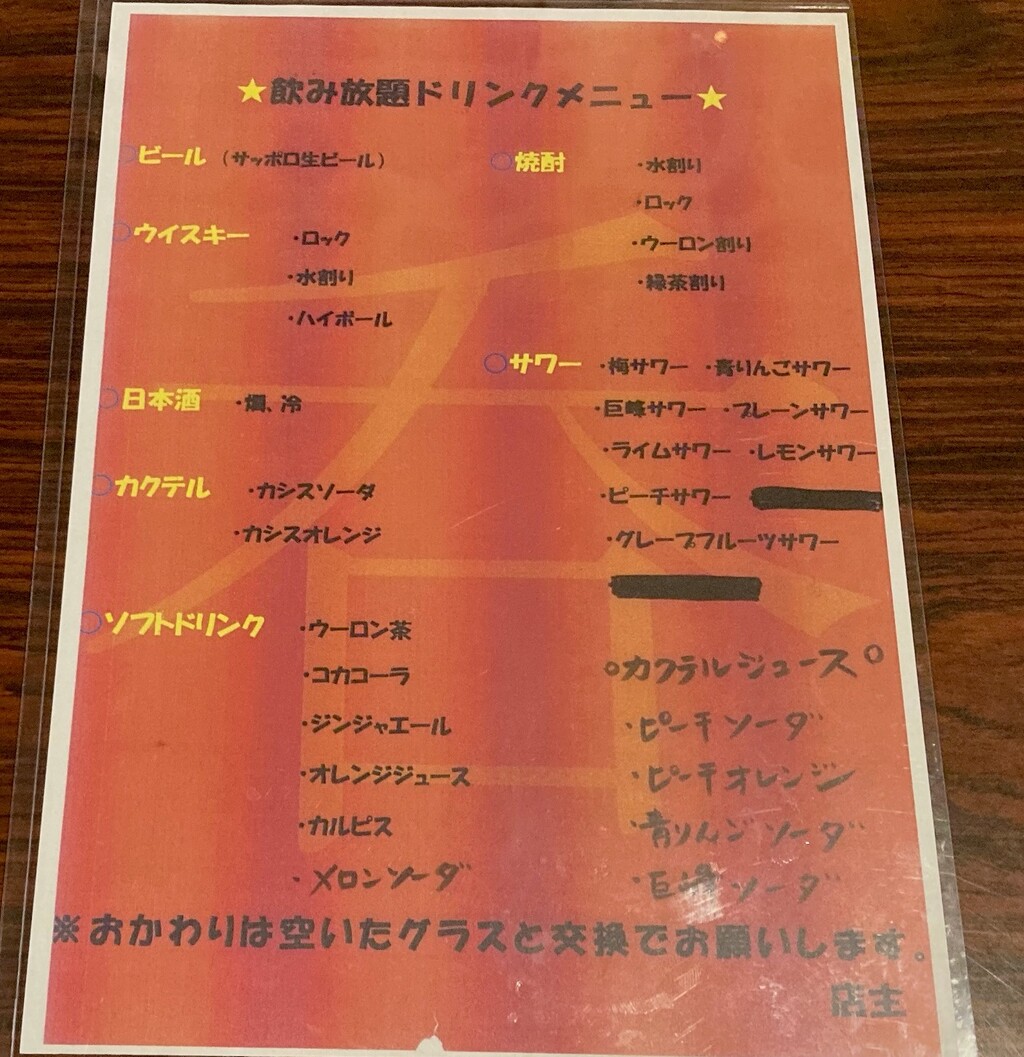 ★飲み放題ドリンクメニュー★
○ビール (サッポロ生ビール)
○ウイスキー ・ロック
・水割り
・ハイボール
○日本酒 ・燗、冷
○カクテル ・カシスソーダ
・カシスオレンジ
○ソフトドリンク ・ウーロン茶
・コカコーラ
・ジンジャエール
・オレンジジュース
・カルピス
・メロンソーダ
○焼酎 ・水割り
・ロック
・ウーロン割り
・緑茶割り
○サワー ・梅サワー ・青りんごサワー
・巨峰サワー ・プレーンサワー
・ライムサワー ・レモンサワー
・ピーチサワー
・グレープフルーツサワー
○カクテルジュース○
・ピーチソーダ
・ピーチオレンジ
・青りんごソーダ
・巨峰ソーダ
※おかわりは空いたグラスと交換でお願いします。
店主
呑